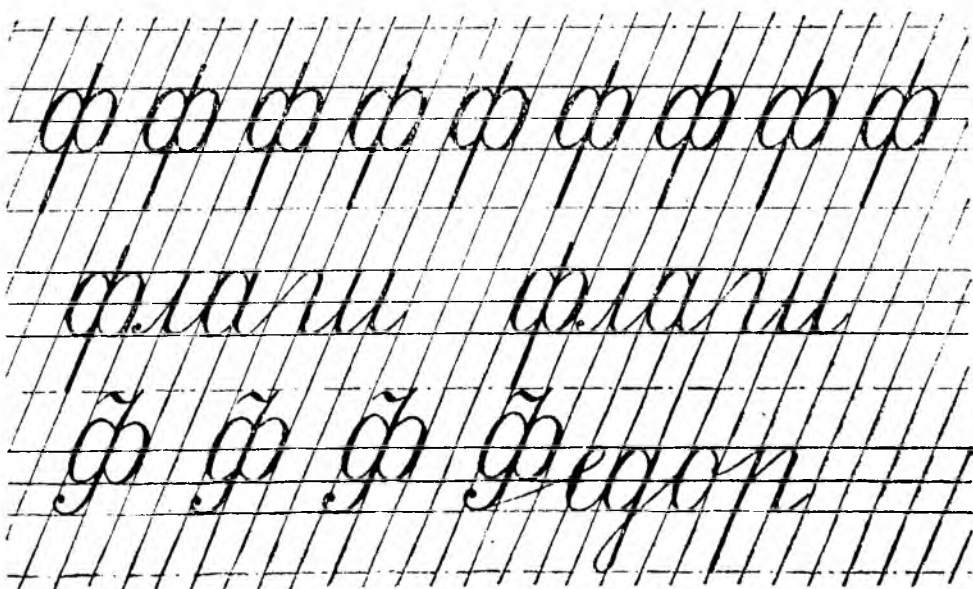 ф ф ф ф ф ф ф ф ф
флаги флаги
Ф Ф Ф Федор